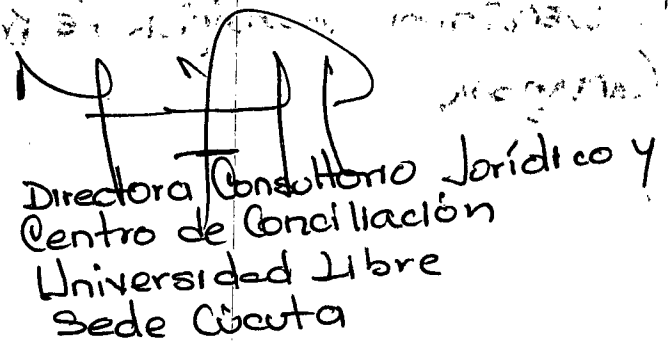 Directora Consultorio Jorídico y
Centro de Conciliación
Universidad Libre
Sede Cúcuta